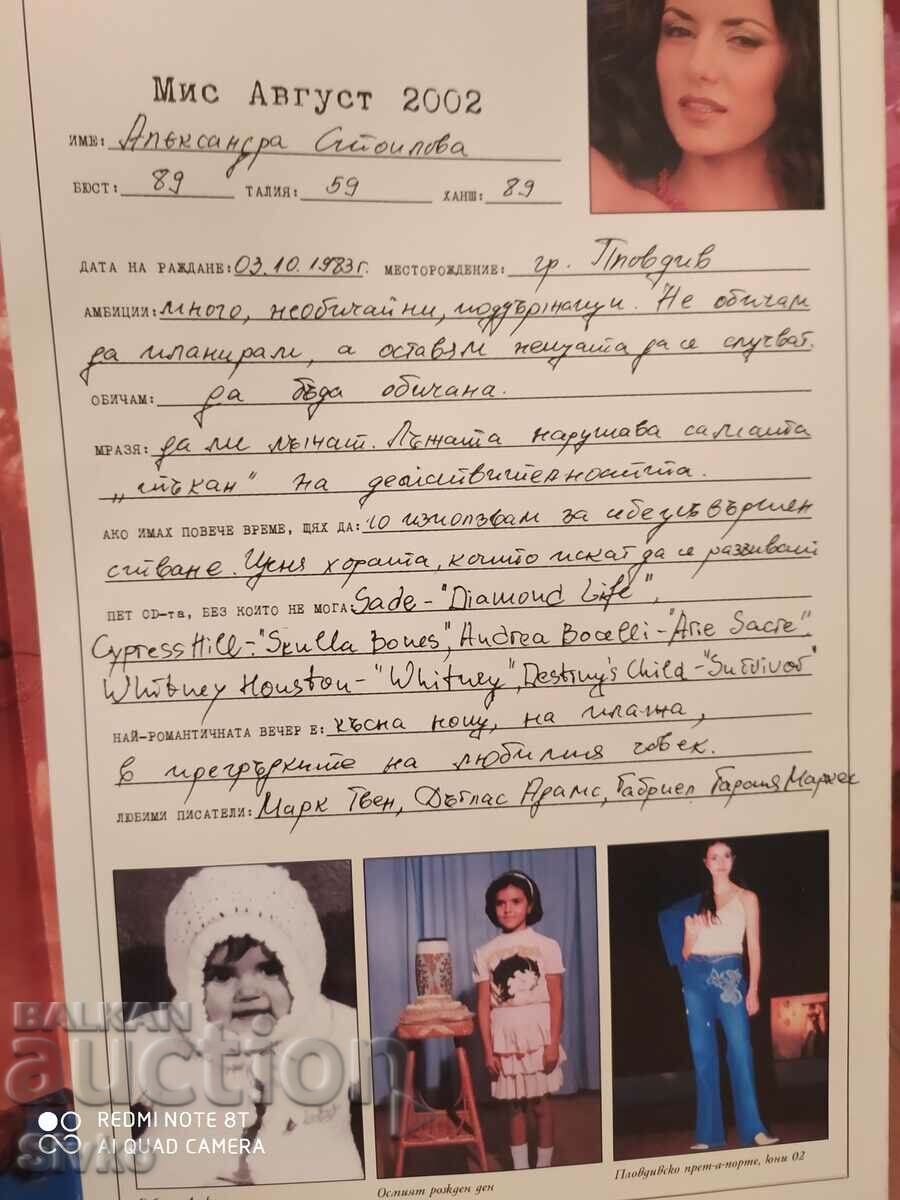 Мис Август 2002
ИМЕ: Александра Стоилова
БЮСТ: 89 ТАЛИЯ: 59 ХАНШ: 89
ДАТА НА РАЖДАНЕ: 03.10.1983г. МЕСТОРОЖДЕНИЕ: гр. Пловдив
АМБИЦИИ: много, необичайни, поддържащи. Не обичам
да планирам, а оставям нещата да се случват.
ОБИЧАМ: да бъда обичана.
МРАЗЯ: да ме лъжат. Лъжата нарушава самата
„тъкан" на действителността.
АКО ИМАХ ПОВЕЧЕ ВРЕМЕ, ЩЯХ ДА: го използвам за себеусъвършен
стване. Ценя хората, които искат да се развиват
ПЕТ CD-та, БЕЗ КОИТО НЕ МОГА: Sade - "Diamond Life",
Cypress Hill - "Skulla Bones", Andrea Bocelli - "Arie Sacre",
Whitney Houston - "Whitney", Destiny's Child - "Survivor"
НАЙ-РОМАНТИЧНАТА ВЕЧЕР Е: късна нощ, на плажа,
в прегръдките на любимия човек.
ЛЮБИМИ ПИСАТЕЛИ: Марк Твен, Дъглас Адамс, Габриел Гарсия Маркес
BALKAN
auction
REDMI NOTE 8T
AI QUAD CAMERA
Sivko
Осмият рожден ден
Пловдивско прет-а-порте, юни 02